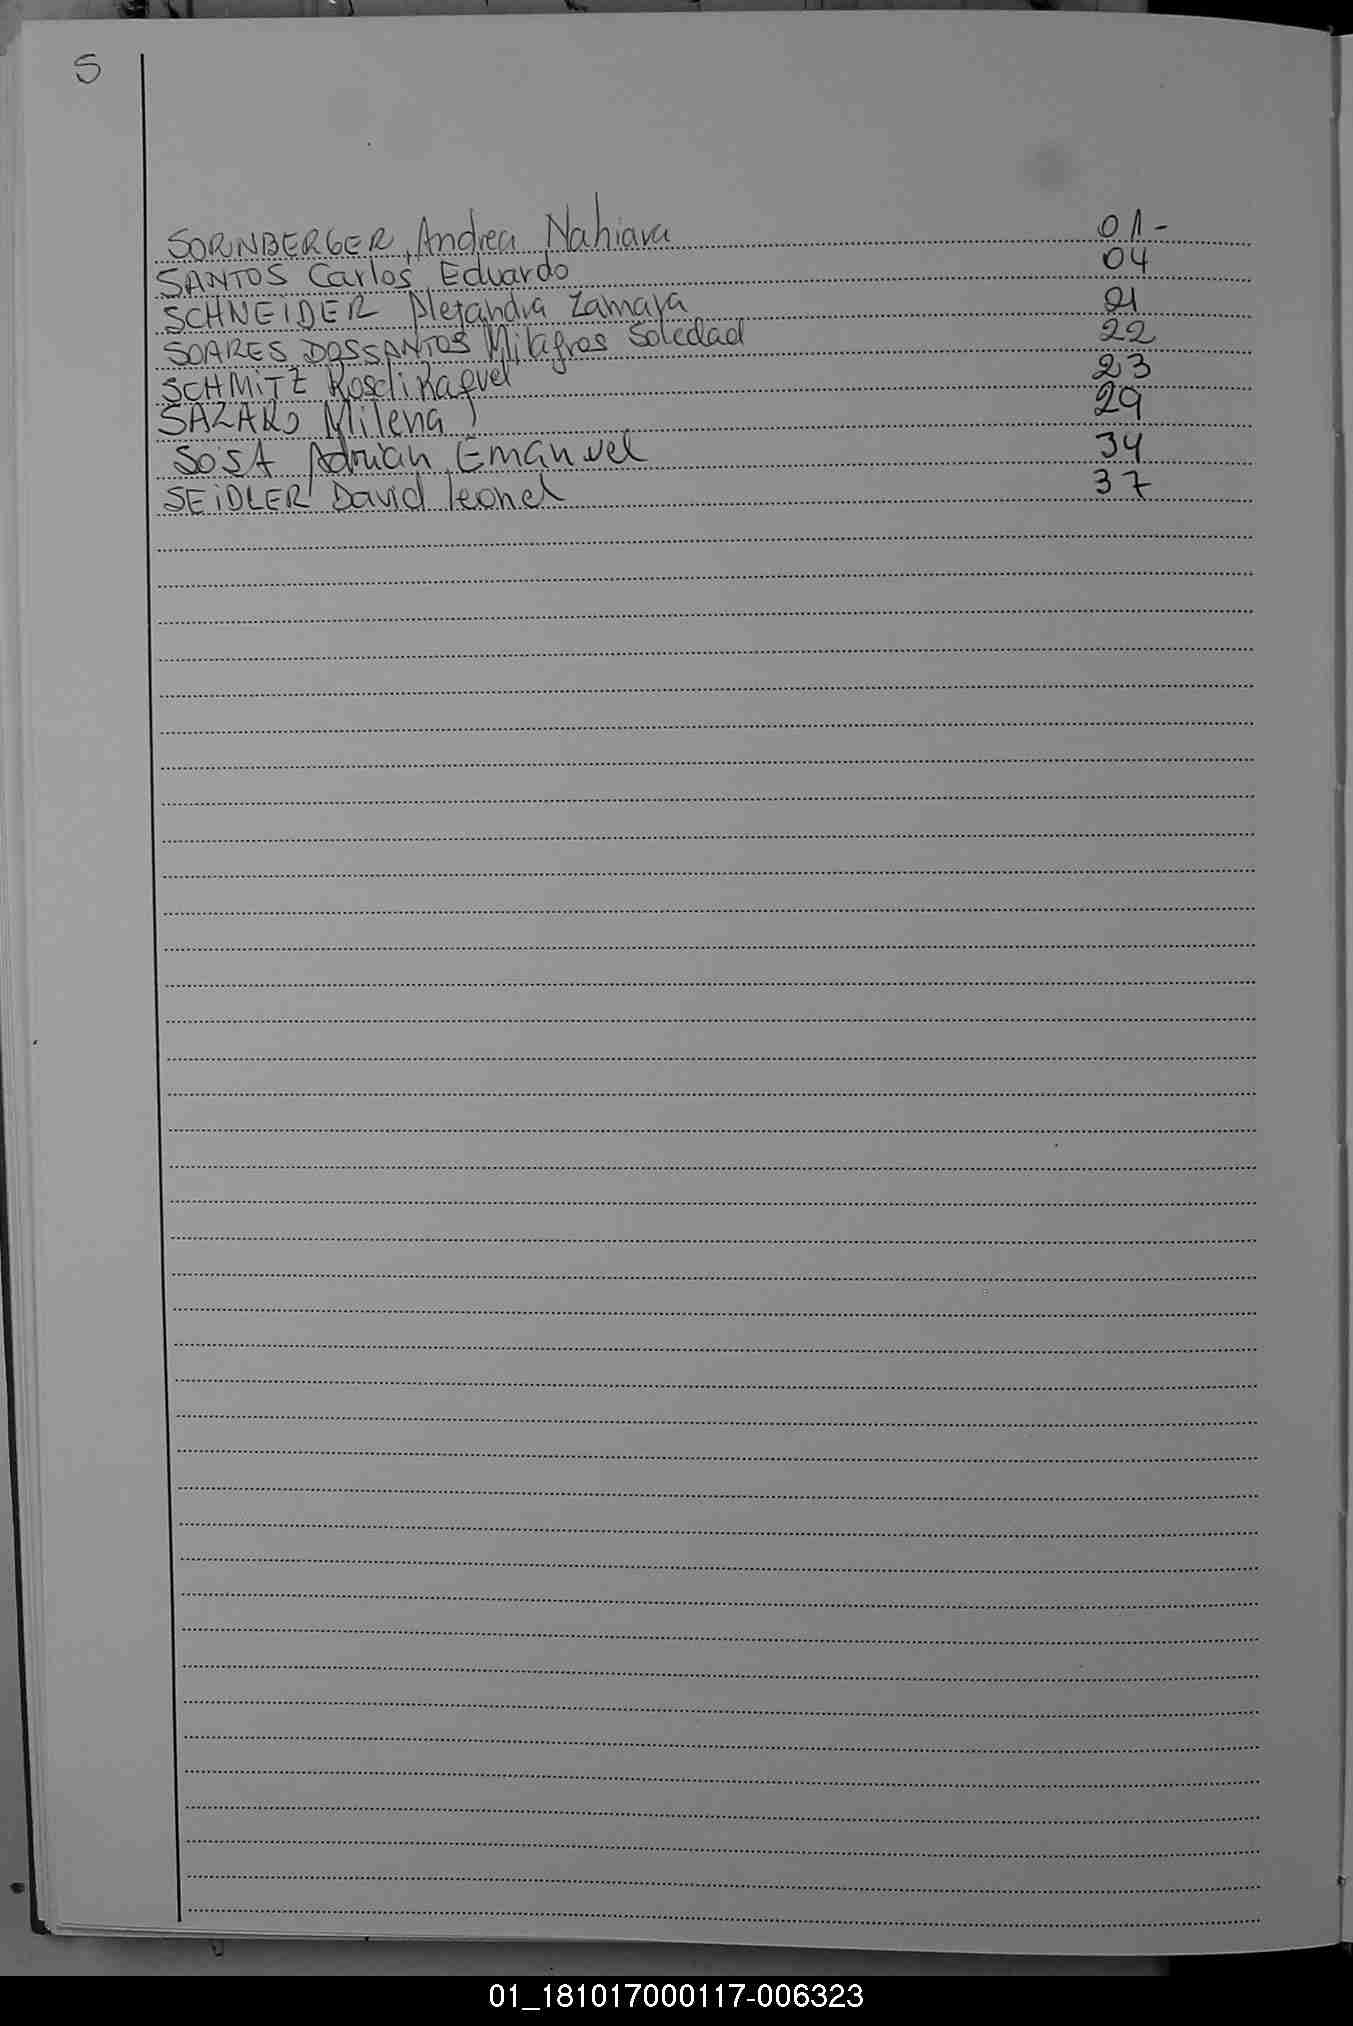 S
SORNBERGER, Andrea Nahiara 01-
SANTOS Carlos Eduardo 04
SCHNEIDER Alejandra Zamara 21
SOARES DOSSANTOS Milagros Soledad 22
SCHMITZ Roseli Raquel 23
SAZAKO Milena 29
SOSA Adrian Emanuel 34
SEIDLER David Leonel 37
01_181017000117-006323